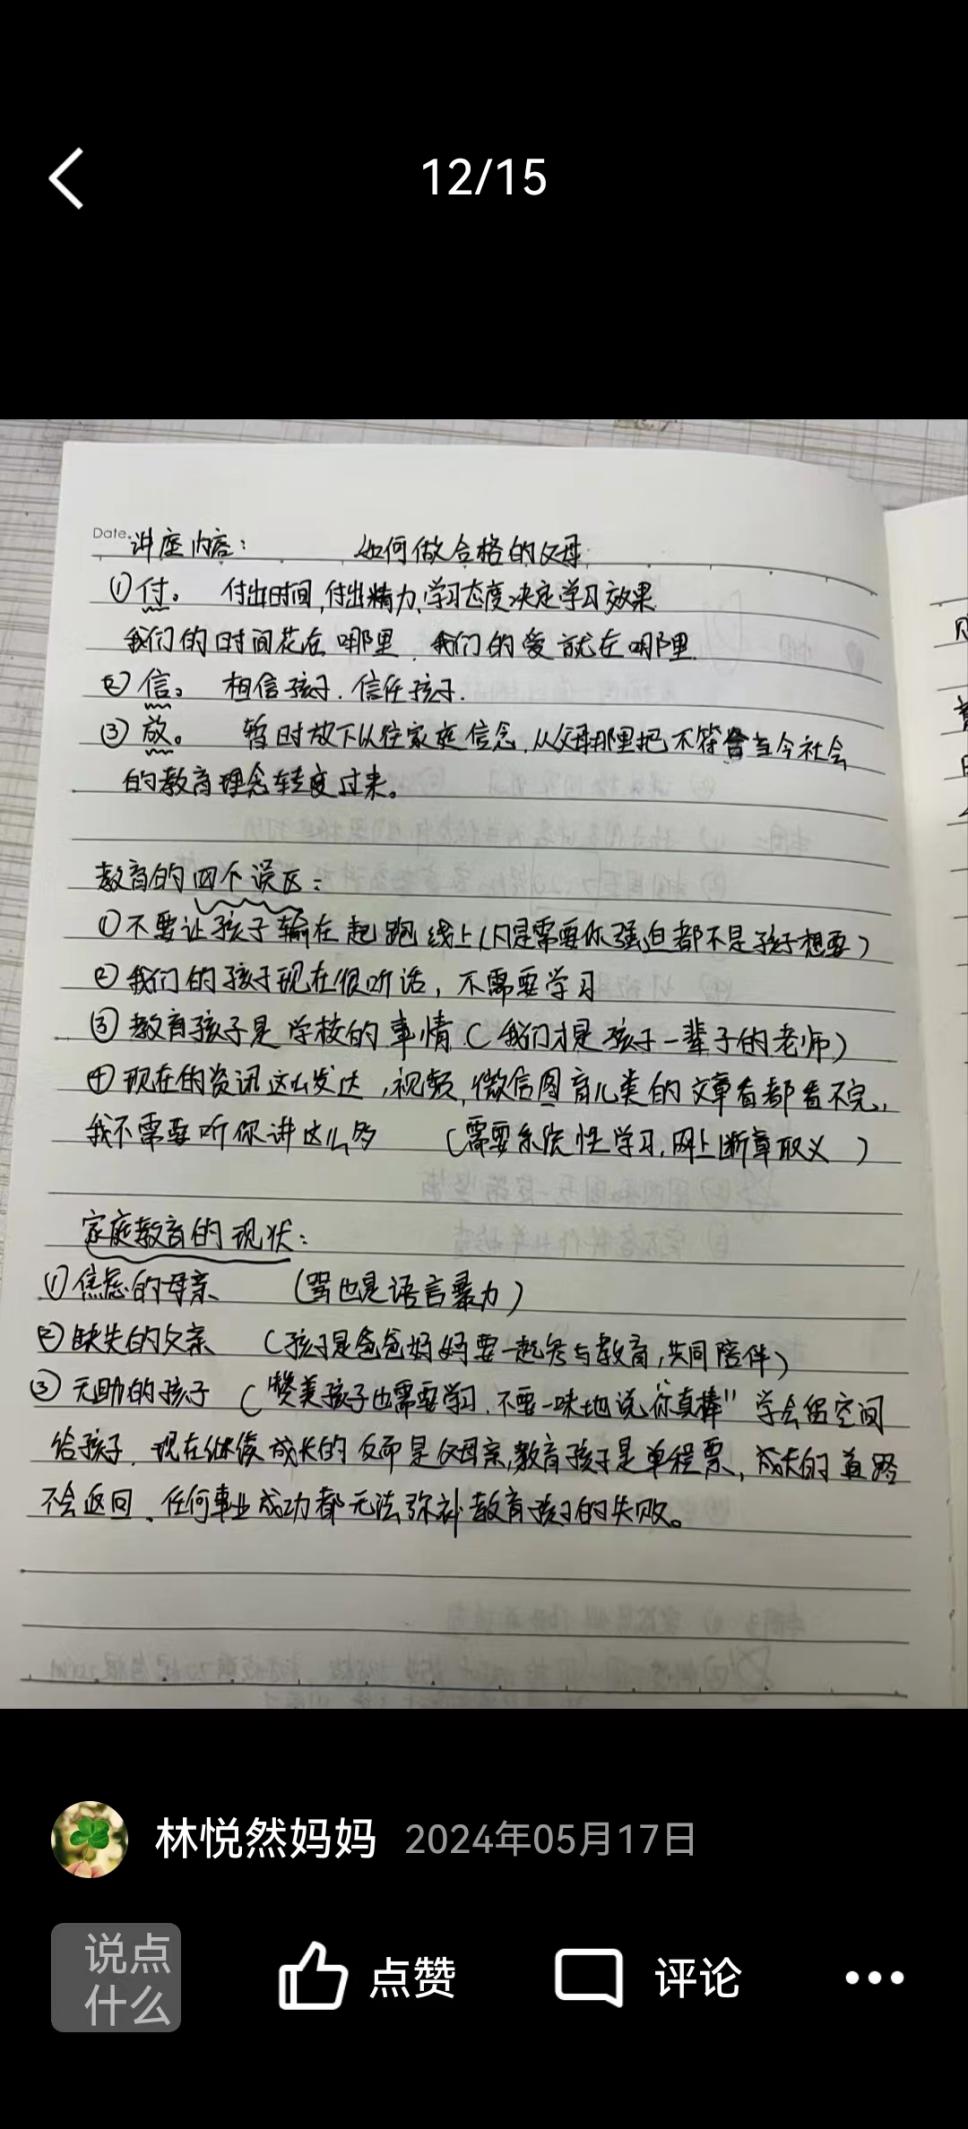 12/15
Date.
讲座内容： 如何做合格的父母
①付。 付出时间,付出精力,学习态度决定学习效果
我们的时间花在哪里，我们的爱就在哪里
②信。 相信孩子，信任孩子.
③放。 暂时放下以往家庭信念,从父母那里把不符合当今社会
的教育理念转变过来。
教育的四个误区：
①不要让孩子输在起跑线上(凡是需要你强迫都不是孩子想要)
②我们的孩子现在很听话，不需要学习
③教育孩子是学校的事情(我们才是孩子一辈子的老师)
④现在的资讯这么发达,视频,微信图育儿类的文章看都看不完,
我不需要听你讲这么多 (需要系统性学习,网上断章取义)
家庭教育的现状：
①焦虑的母亲 (骂也是语言暴力)
②缺失的父亲 (孩子是爸爸妈妈要一起参与教育,共同陪伴)
③无助的孩子 ("赞美孩子也需要学习,不要一味地说"你真棒" 学会留空间
给孩子，现在继续成长的反而是父母亲,教育孩子是单程票,成长的道路
不会返回、任何事业成功都无法弥补教育孩子的失败。
林悦然妈妈 2024年05月17日
说点
什么
点赞 评论